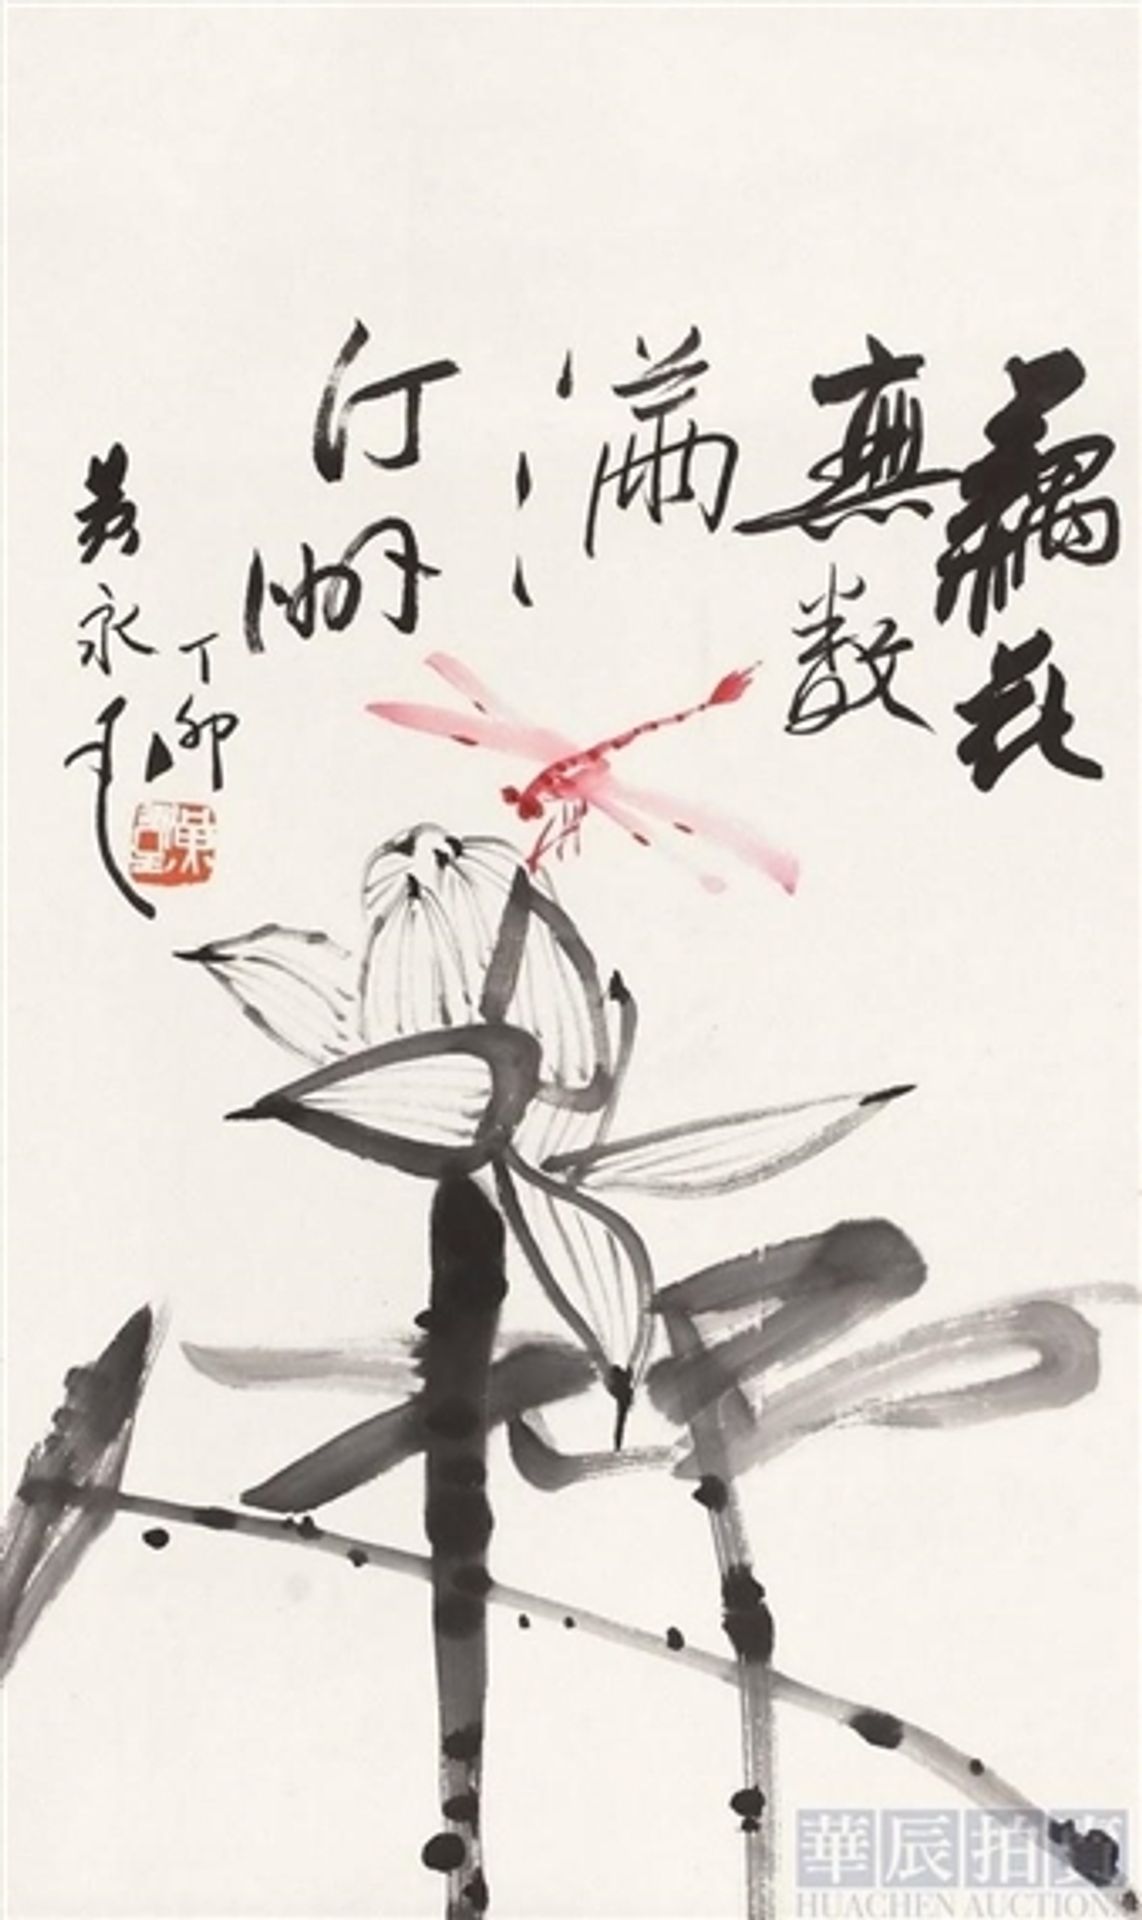 藕花
無數
滿
汀洲
丁卯
黄永玉
華辰拍賣
HUACHEN AUCTIONS